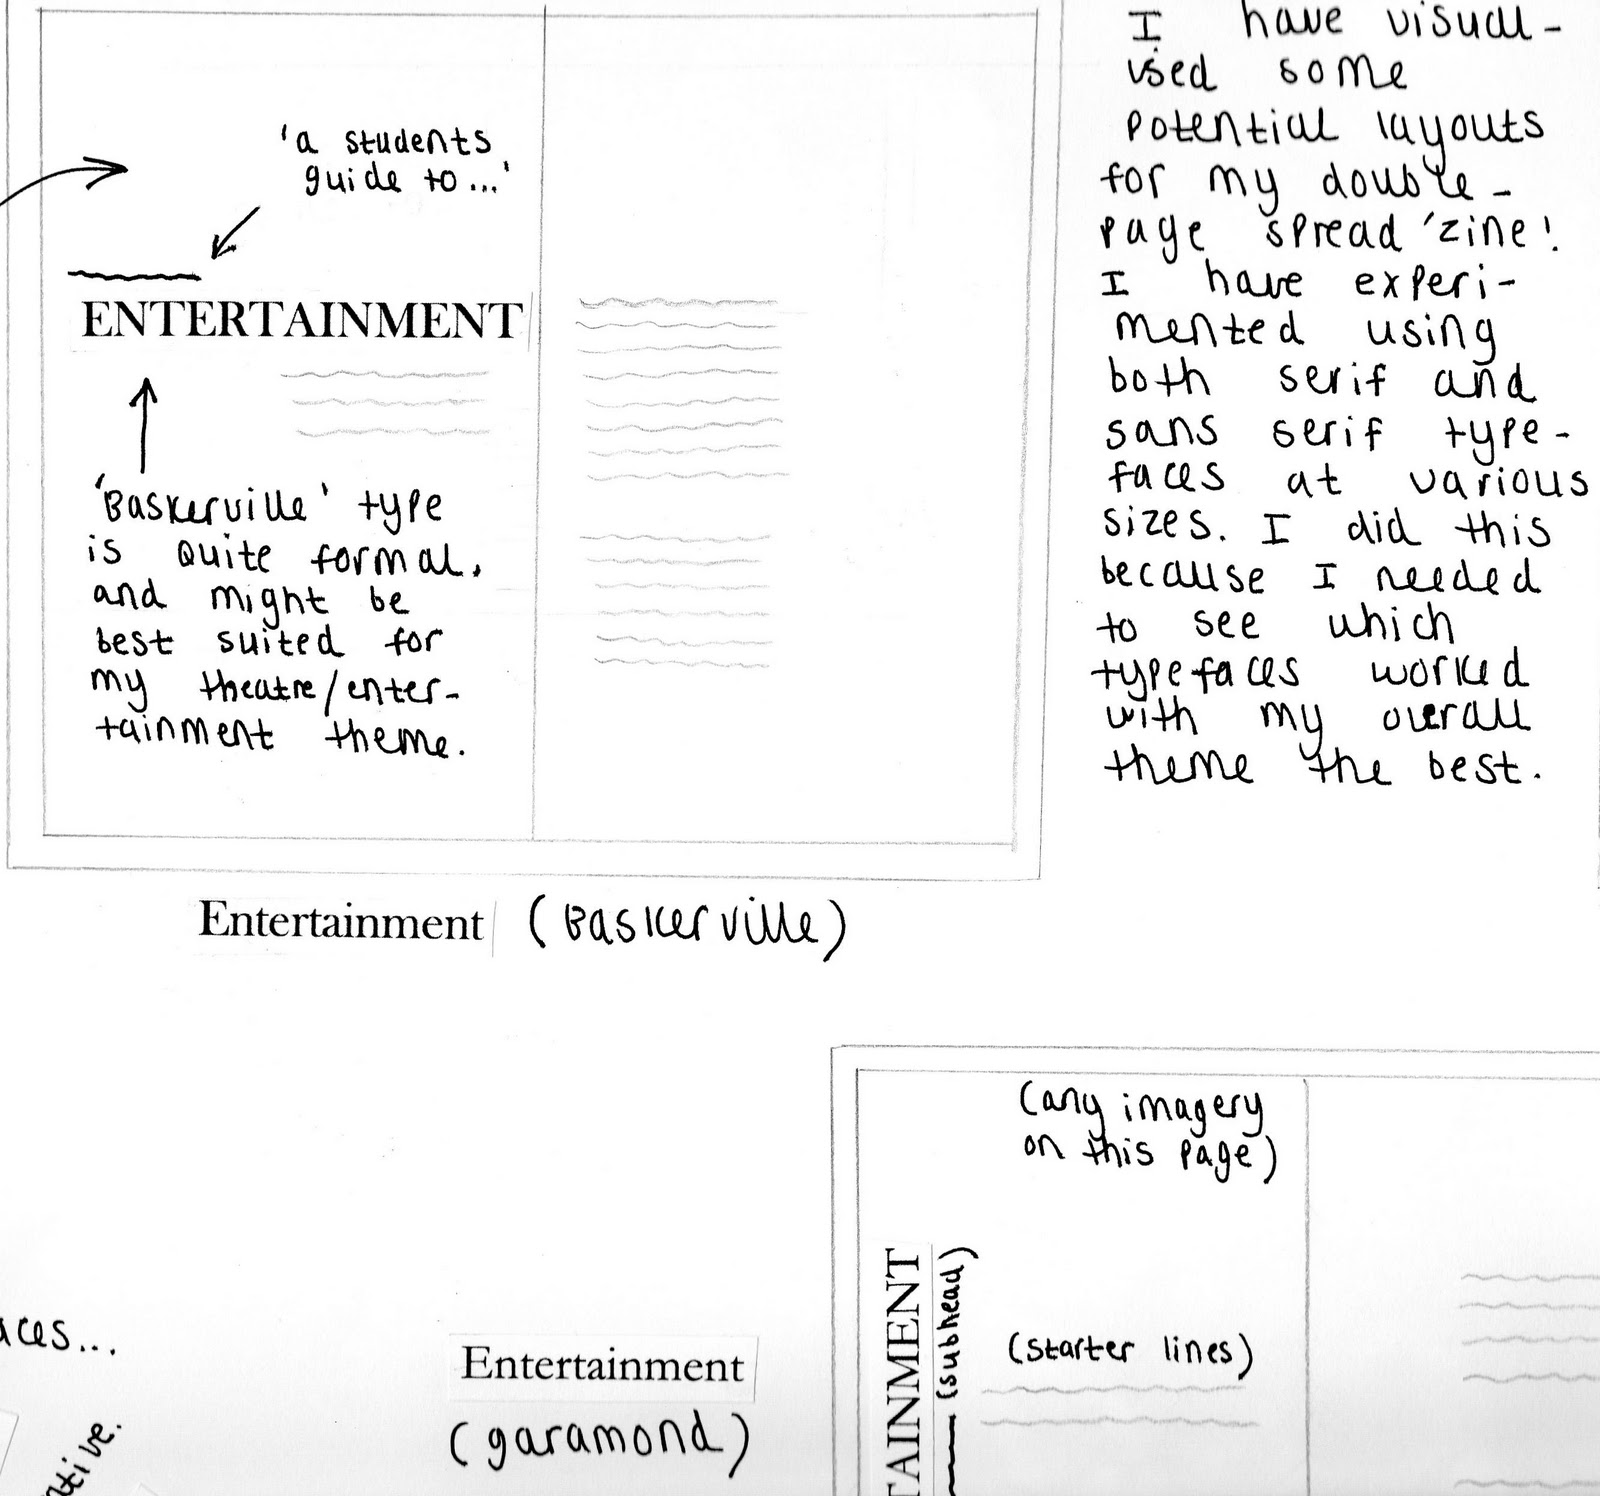 'a students
guide to...'
ENTERTAINMENT
'Baskerville' type
is quite formal,
and might be
best suited for
my theatre/enter-
tainment theme.
I have visual-
ised some
potential layouts
for my double-
page spread 'zine'.
I have experi-
mented using
both serif and
sans serif type-
faces at various
sizes. I did this
because I needed
to see which
typefaces worked
with my overall
theme the best.
Entertainment (Baskerville)
(any imagery
on this page)
TAINMENT
(subhead)
(starter lines)
aces...
Entertainment
(garamond)
ative.